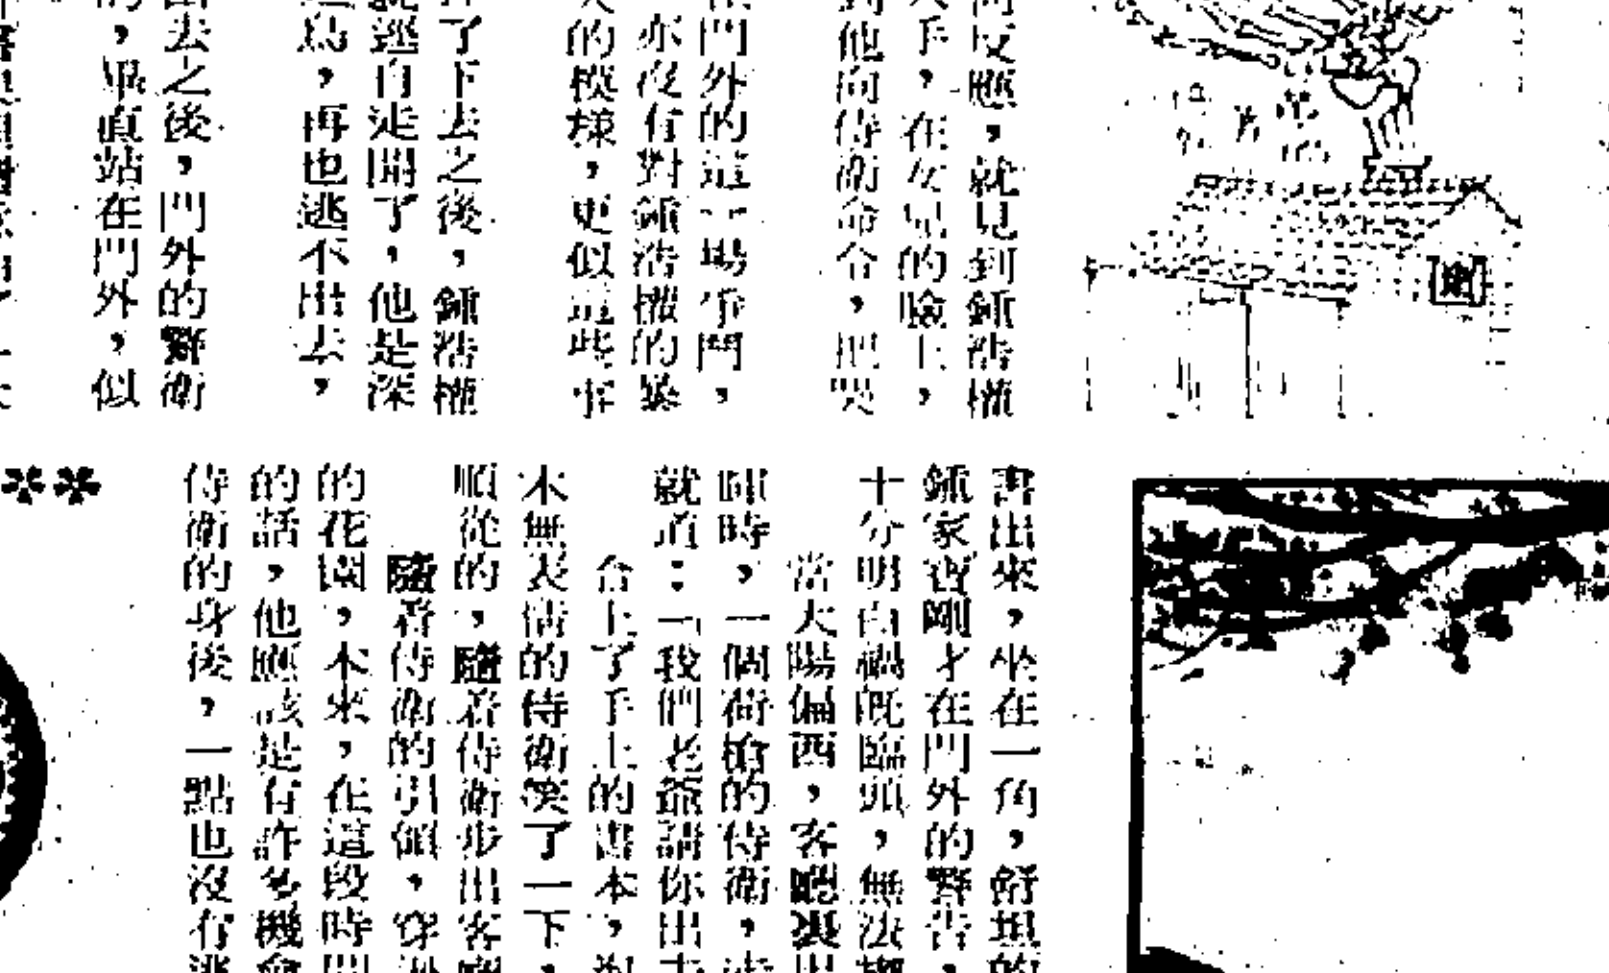 反應，就見到鍾浩權
手，在女兒的臉上，
到他向侍衛命令，把哭
門外的這一場爭鬥，
亦沒有對鍾浩權的暴
的模樣，更似這些事
了下去之後，鍾浩權
就逕自走開了，他是深
鳥，再也逃不出去，
去之後，門外的警衛
，畢直站在門外，似
書出來，坐在一角，舒坦的
鍾家寶剛才在門外的警告，
十分明白禍旣臨頭，無法
當太陽偏西，客廳裏
時，一個荷槍的侍衛，
就道：「我們老爺請你出去
合上了手上的書本，
木無表情的侍衛笑了一下，
順從的，隨着侍衛步出客
隨着侍衛的引領，穿
的花園，本來，在這段時間
的話，他應該是有許多機會
侍衛的身後，一點也沒有逃